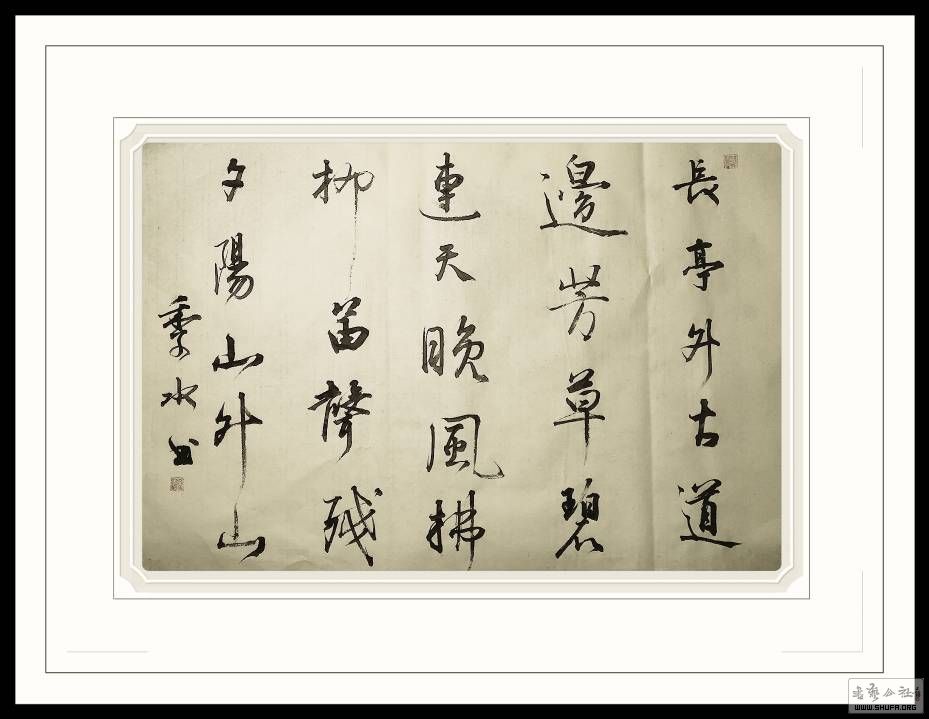 長亭外古道
邊芳草碧
連天晚風拂
柳笛聲殘
夕陽山外山
季水書
WWW.SHUFA.ORG